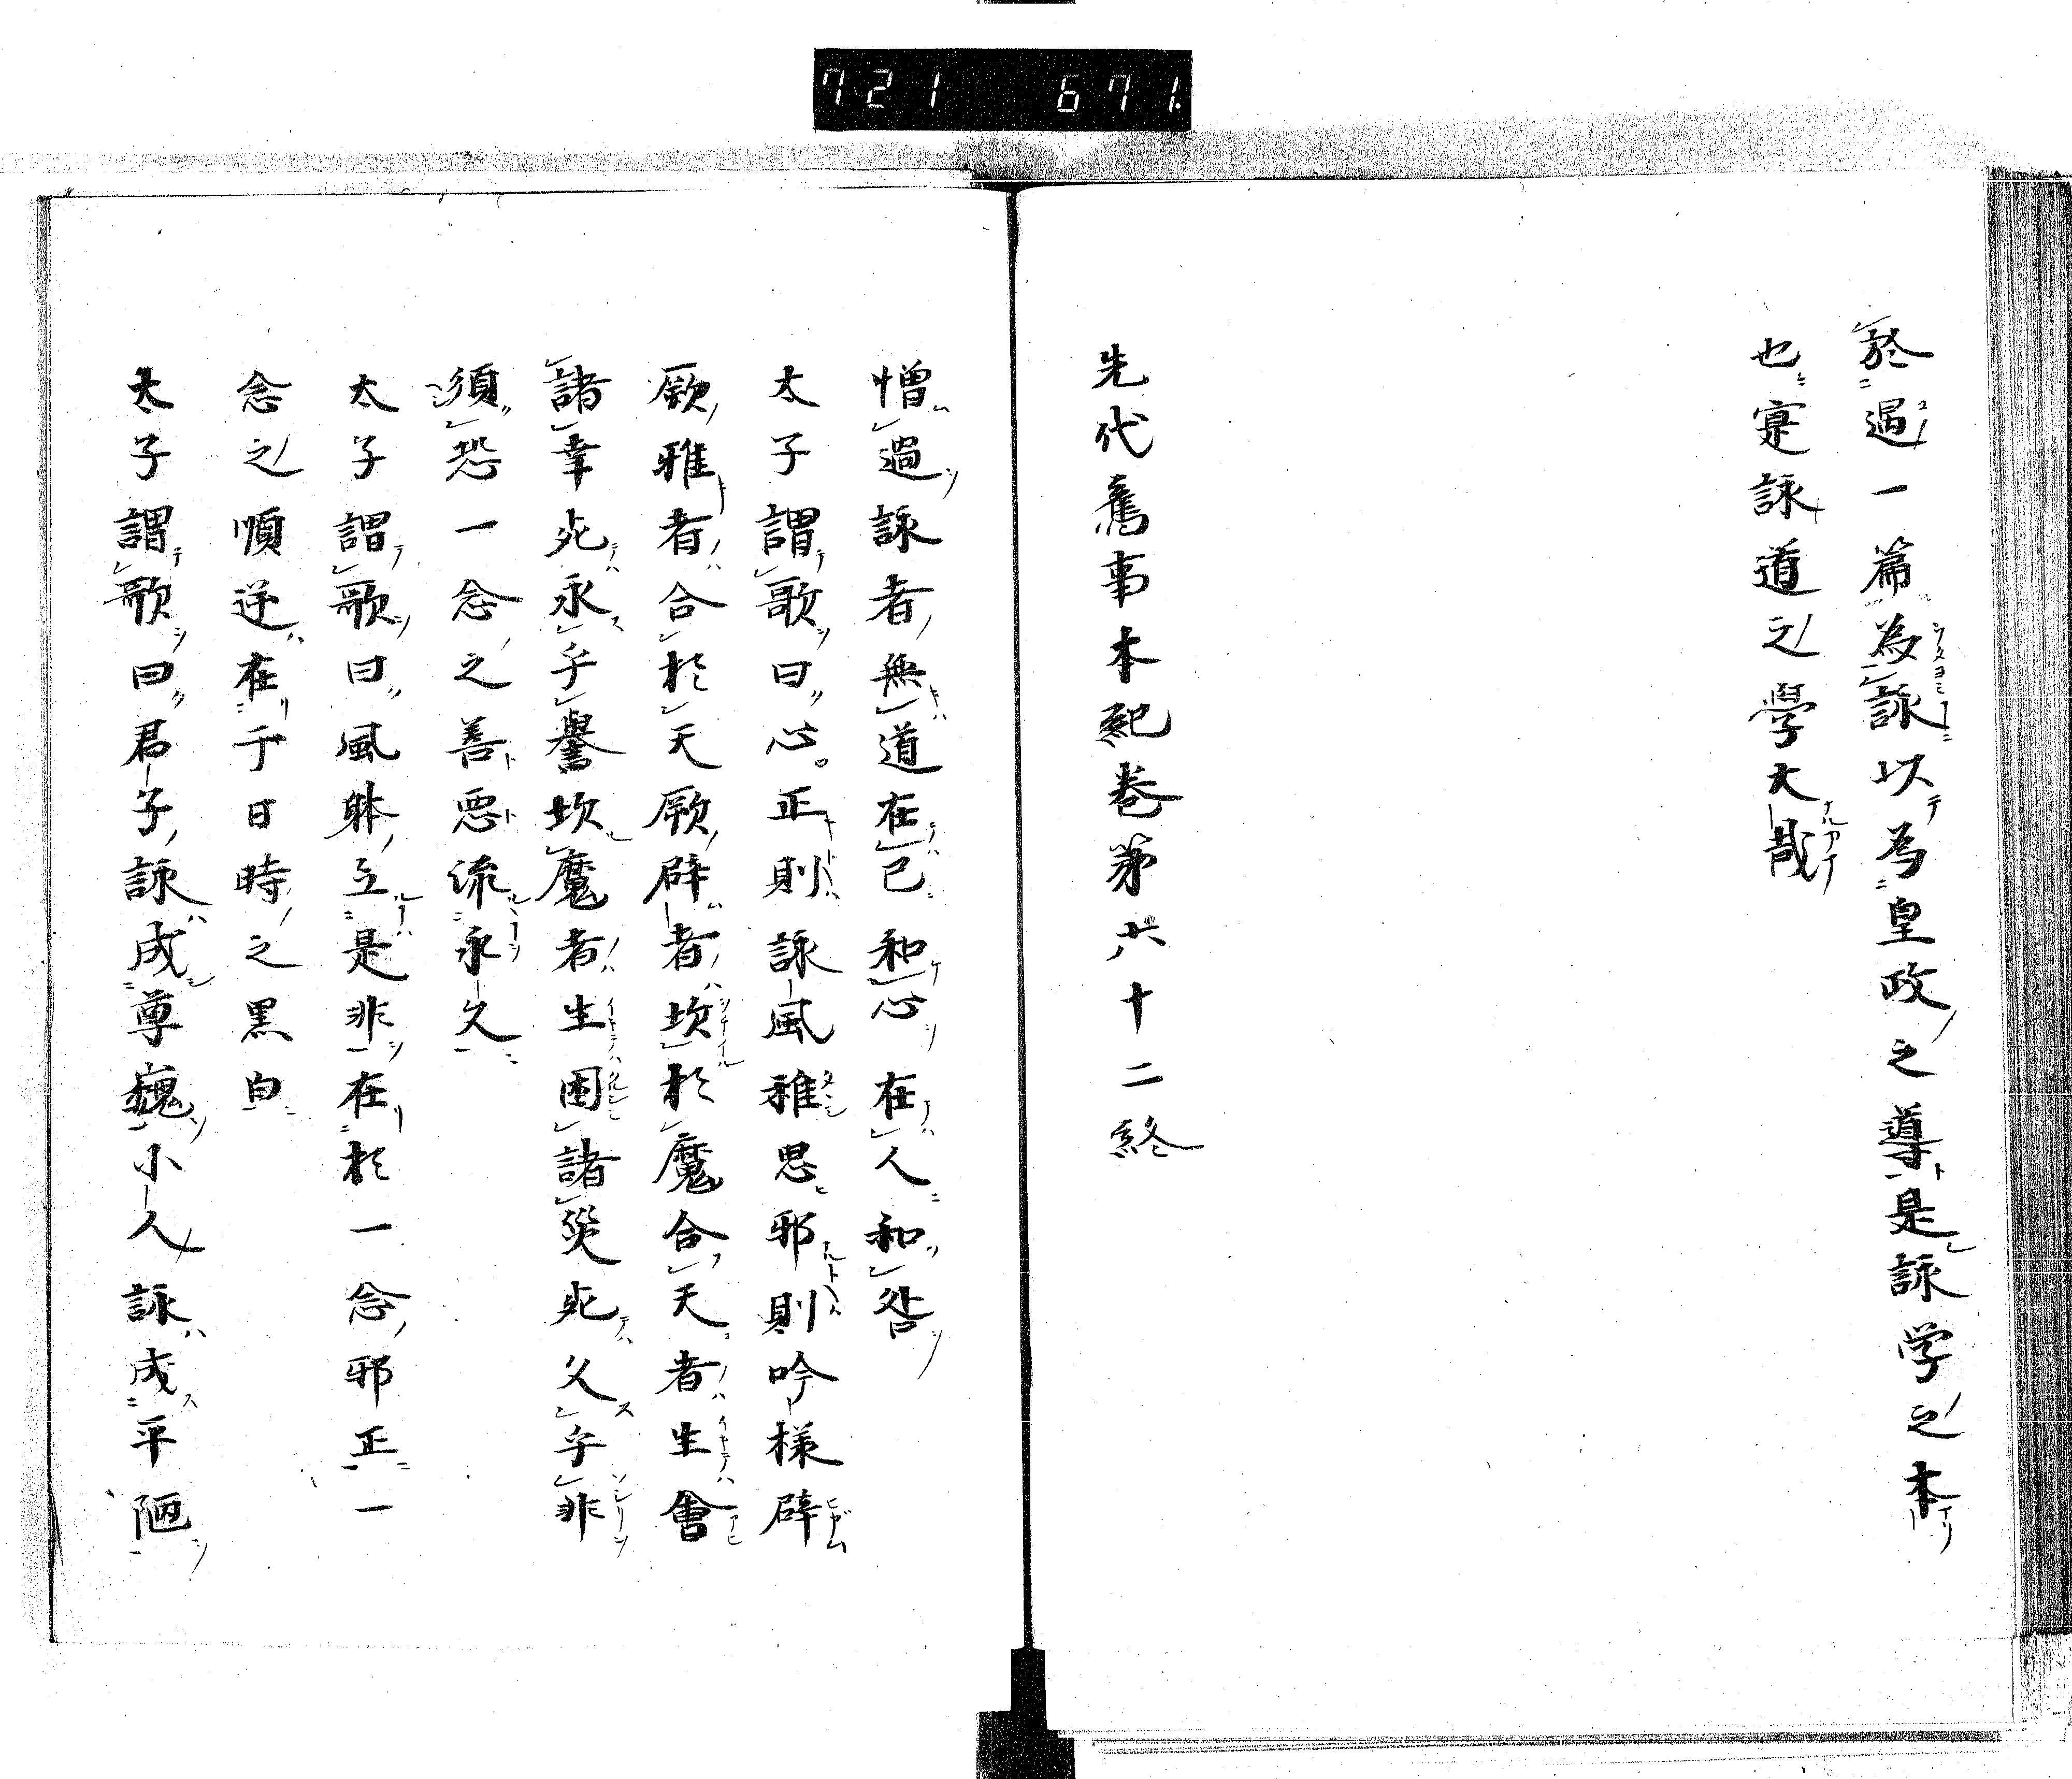 721 671.
於過一篇為詠以為皇政之導是詠学之本
也寔詠道之學大哉
先代舊事本紀巻第六十二終
憎過詠者無道在己和心在人和咎
太子謂歌曰心正則詠風雅思邪則吟樣辟
厥雅者合於天厥辟者坎於魔合天者生會
諸幸死永乎譽坎魔者生困諸災死久乎非
須恐一念之善惡流永久
太子謂歌曰風躰立是非在於一念邪正一
念之順逆在于日時之黒白
太子謂歌曰君子詠成尊巍小人詠成平陋